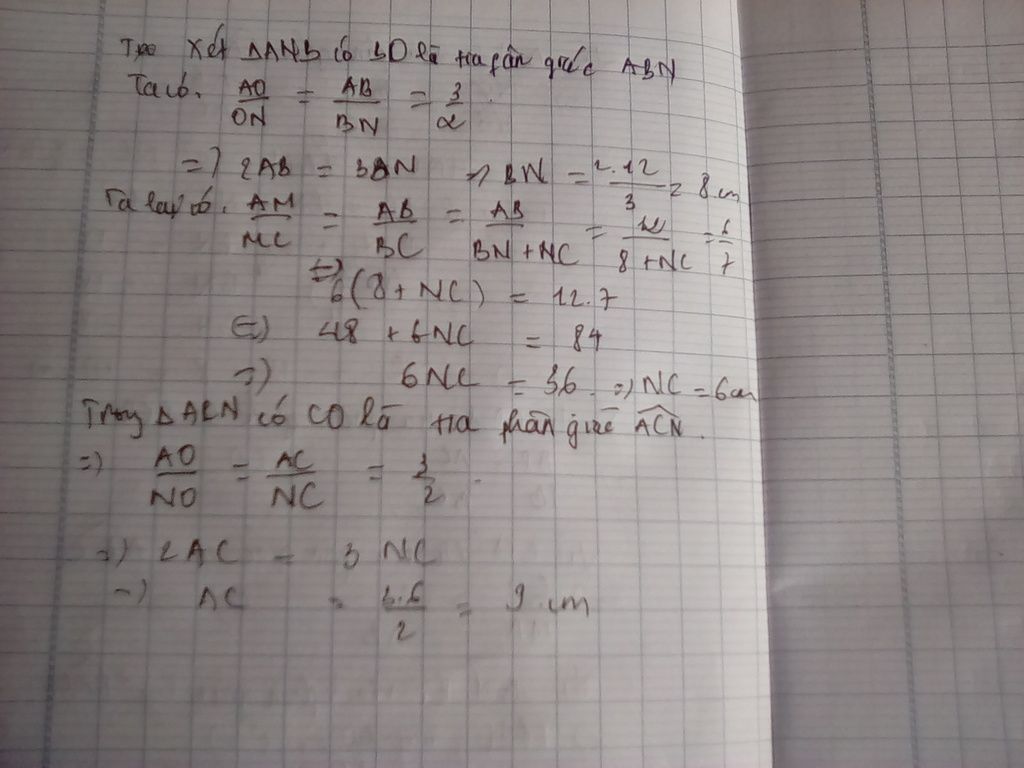 Xét ΔANB có BO là tia phân giác ABN
Ta có. AO/ON = AB/BN = 3/2.
=) 2AB = 3BN =) BN = 2.12/3 = 8cm
Ta lại có. AM/MC = AB/BC = AB/BN+NC = 12/8+NC = 6/7
(=) 6(8+NC) = 12.7
(=) 48 + 6NC = 84
=) 6NC = 36. =) NC = 6cm
Trong ΔACN có CO là tia phân giác ACN.
=) AO/NO = AC/NC = 3/2.
=) 2AC = 3 NC
=) AC = 3.6/2 = 9 cm